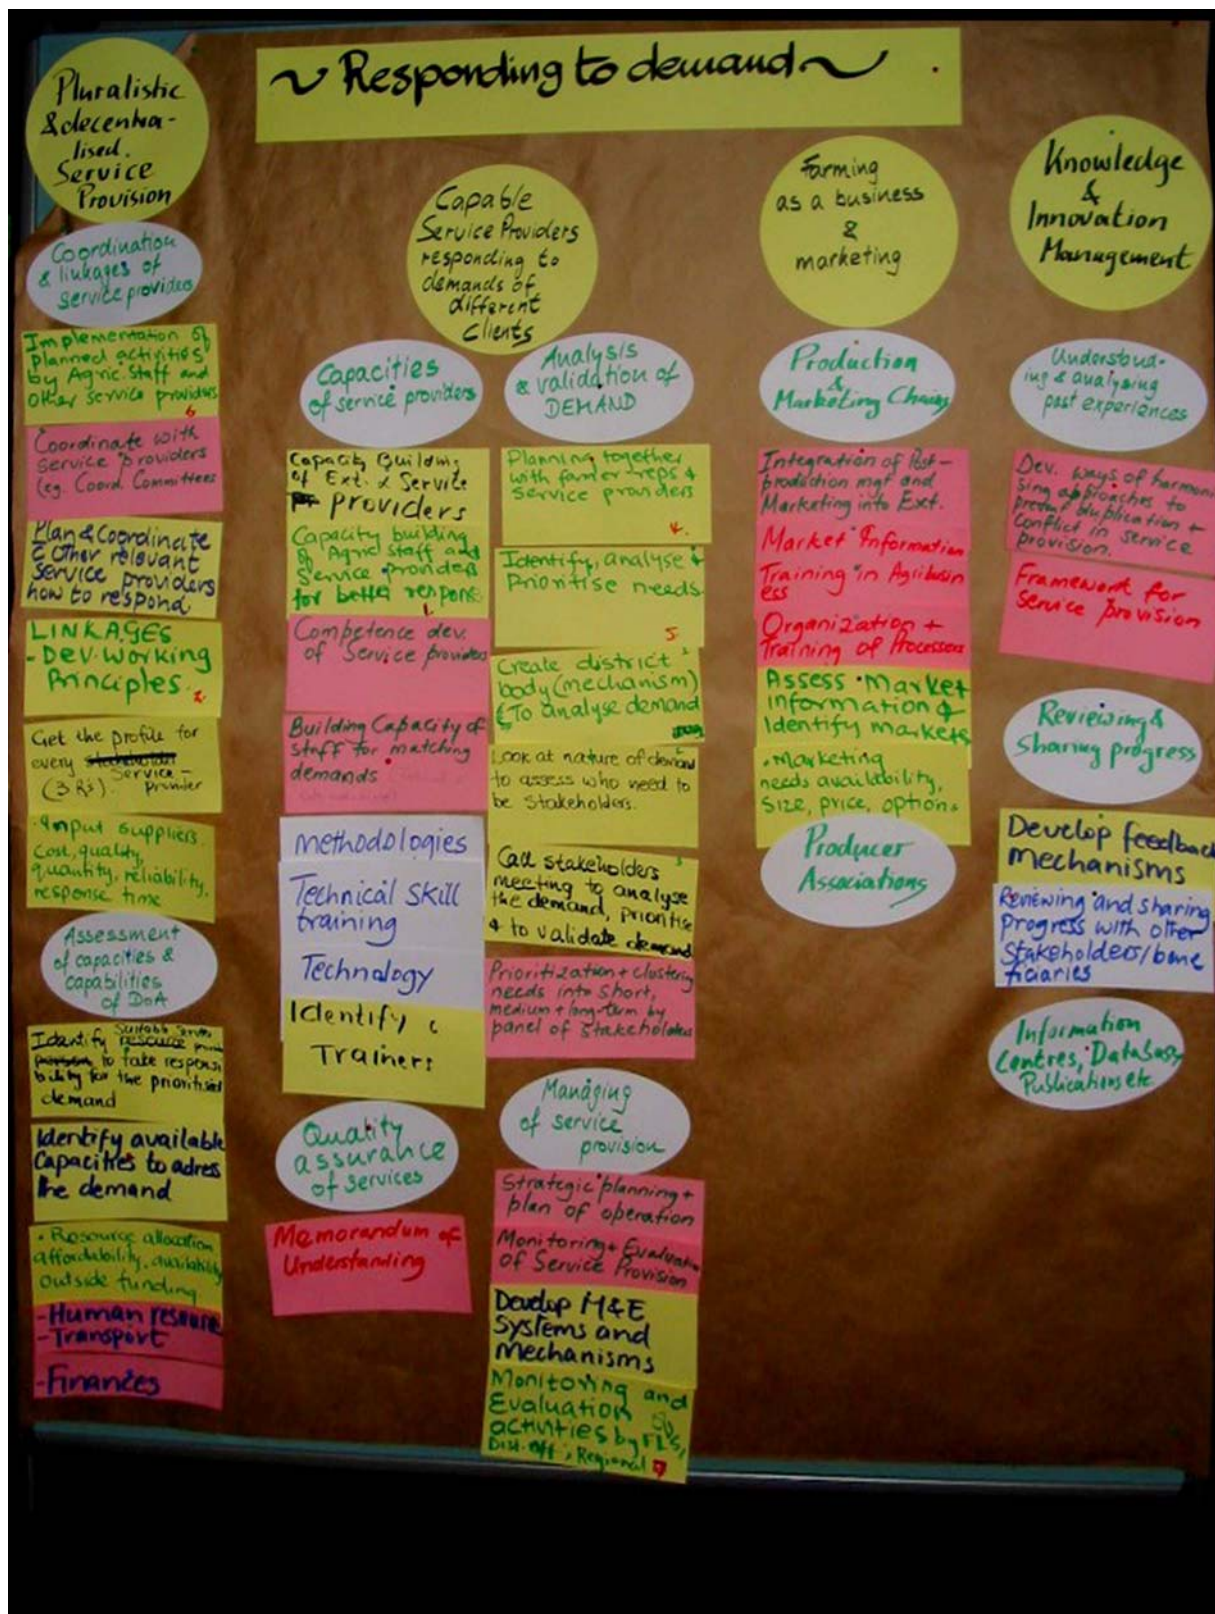 ~ Responding to demand ~
Pluralistic
& decentra-
lised.
Service
Provision
Coordination
& linkages of
service providers
Implementation of
planned activities
by Agric. Staff and
Other service providers
6
Coordinate with
service providers
(eg. Coord Committees
Plan & Coordinate
c Other relevant
service providers
how to respond
LINKAGES
- Dev. working
Principles.
2.
Get the profile for
every
Service -
(3 Rs). provider
• Input suppliers.
cost, quality,
quantity, reliability,
response time
Assessment
of capacities &
capabilities
of DoA
Suitable
Identify resource
to take responsi
bility for the prioritised
demand
Identify available
Capacities to adress
the demand
• Resource allocation
affordability, availability
outside funding
- Human resource
- Transport
- Finances
Capable
Service Providers
responding to
demands of
different
clients
Capacities
of service providers
Capacity Building
of Ext. & Service
providers
Capacity building
of Agric staff and
Service providers
for better response
1.
Competence dev.
of Service providers
Building Capacity of
staff for matching
demands
methodologies
Technical skill
training
Technology
Identify
Trainers
Quality
assurance
of services
Memorandum of
Understanding
Analysis
& validation of
DEMAND
Planning together
with farmer reps &
service providers
4.
Identify, analyse &
Prioritise needs
5.
Create district
body (mechanism)
To analyse demand
Look at nature of demand
to assess who need to
be stakeholders.
Call stakeholders
meeting to analyse
the demand, prioritise
& to validate demand
Prioritization + clustering
needs into short,
medium + long-term by
panel of stakeholders
Managing
of service
provision
Strategic planning +
plan of operation
Monitoring + Evaluation
of Service Provision
Develop M&E
Systems and
mechanisms
Monitoring and
Evaluation
activities by
Dist. off, Regional
7
Farming
as a business
&
marketing
Production
&
Marketing Chains
Integration of Post-
production mgt and
Marketing into Ext.
Market Information
Training in Agribusin
ess
Organization +
Training of Processors
Assess Market
information &
Identify markets
• Marketing
needs availability,
size, price, options
Producer
Associations
Knowledge
&
Innovation
Management
Understand-
ing & analysing
past experiences
Dev. ways of harmoni
sing approaches to
prevent duplication +
conflict in service
provision.
Framework for
service provision
Reviewing &
Sharing progress
Develop feedback
mechanisms
Reviewing and sharing
Progress with other
Stakeholders/bene
ficiaries
Information
Centres, Database,
Publications etc